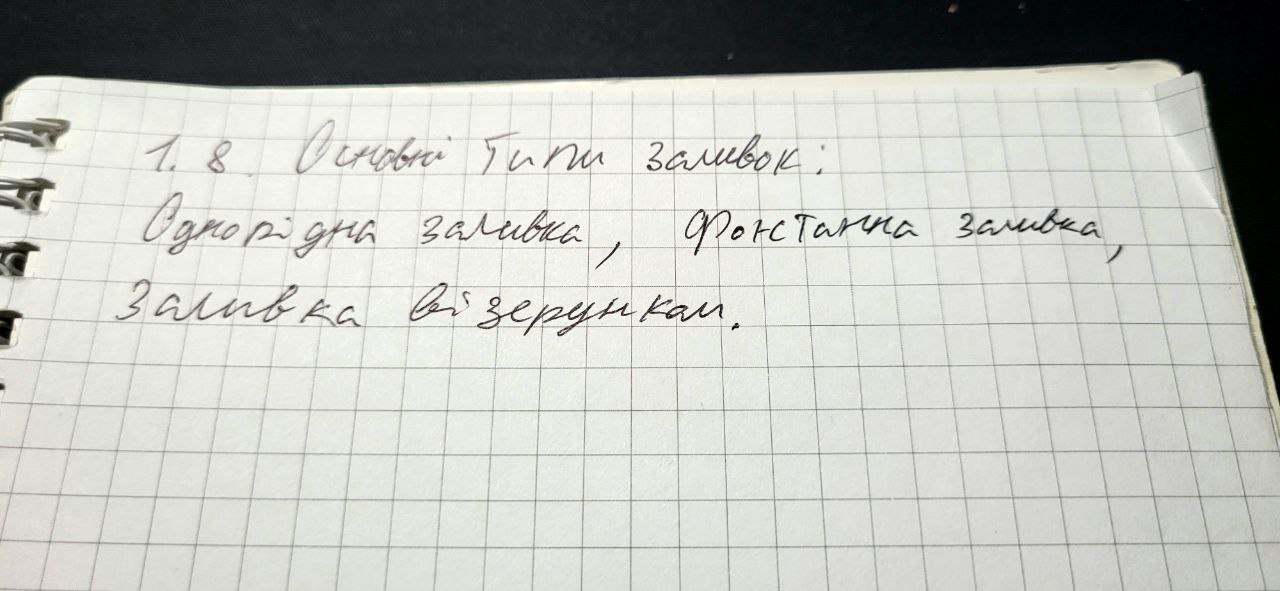 1.8. Основні типи заливок:
Однорідна заливка, Фонстанна заливка,
Заливка візерункам.